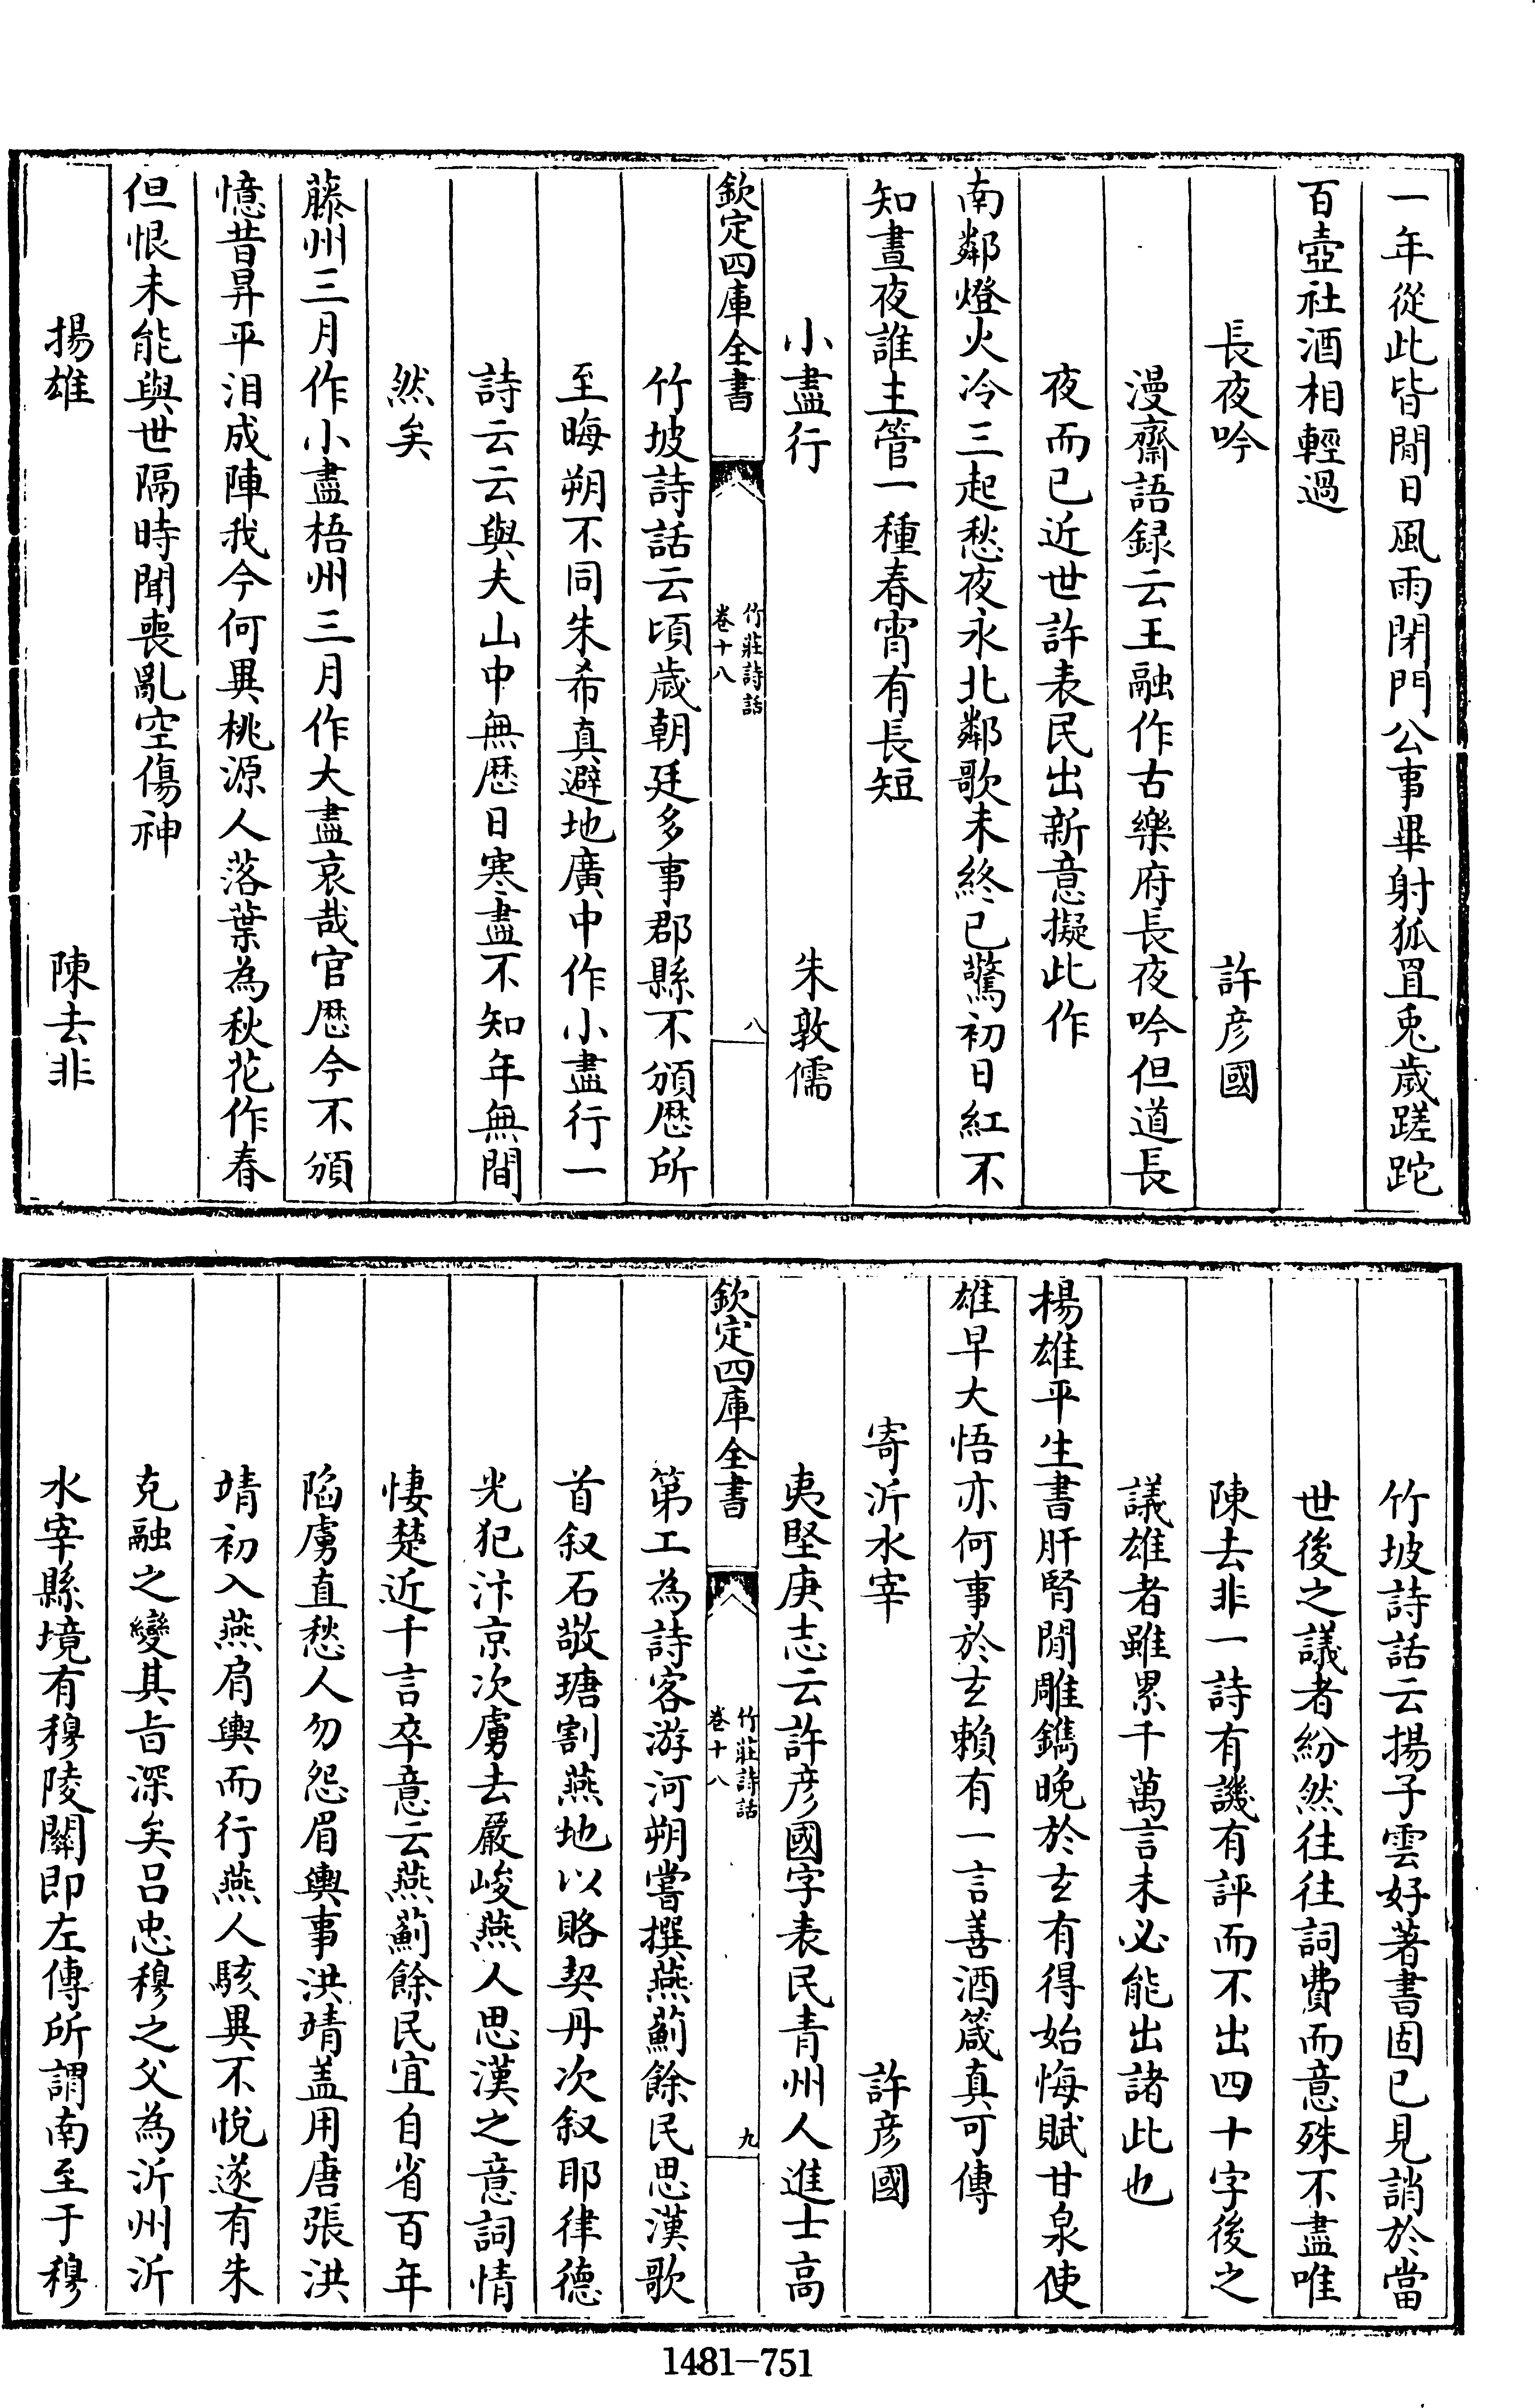 一年從此皆閒日風雨閉門公事畢射狐罝兎歲蹉跎
百壺社酒相輕過
長夜吟　許彦國
漫齋語録云王融作古樂府長夜吟但道長
夜而已近世許表民出新意擬此作
南鄰燈火冷三起愁夜永北鄰歌未終已驚初日紅不
知晝夜誰主管一種春宵有長短
小盡行　朱敦儒
欽定四庫全書　竹莊詩話卷十八　八
竹坡詩話云頃歲朝廷多事郡縣不頒厯所
至晦朔不同朱希真避地廣中作小盡行一
詩云云與夫山中無厯日寒盡不知年無間
然矣
藤州三月作小盡梧州三月作大盡哀哉官厯今不頒
憶昔昇平泪成陣我今何異桃源人落葉為秋花作春
但恨未能與世隔時聞喪亂空傷神
揚雄　陳去非
竹坡詩話云揚子雲好著書固已見誚於當
世後之議者紛然往往詞費而意殊不盡唯
陳去非一詩有譏有評而不出四十字後之
議雄者雖累千萬言未必能出諸此也
楊雄平生書肝腎閒雕鐫晚於玄有得始悔賦甘泉使
雄早大悟亦何事於玄賴有一言善酒箴真可傳
寄沂水宰　許彦國
夷堅庚志云許彦國字表民青州人進士高
欽定四庫全書　竹莊詩話卷十八　九
第工為詩客游河朔嘗撰燕薊餘民思漢歌
首叙石敬瑭割燕地以賂契丹次叙耶律德
光犯汴京次虜去嚴峻燕人思漢之意詞情
悽楚近千言卒意云燕薊餘民宜自省百年
陷虜直愁人勿怨眉輿事洪靖盖用唐張洪
靖初入燕肩輿而行燕人駭異不悅遂有朱
克融之變其旨深矣吕忠穆之父為沂州沂
水宰縣境有穆陵關即左傳所謂南至于穆
1481—751